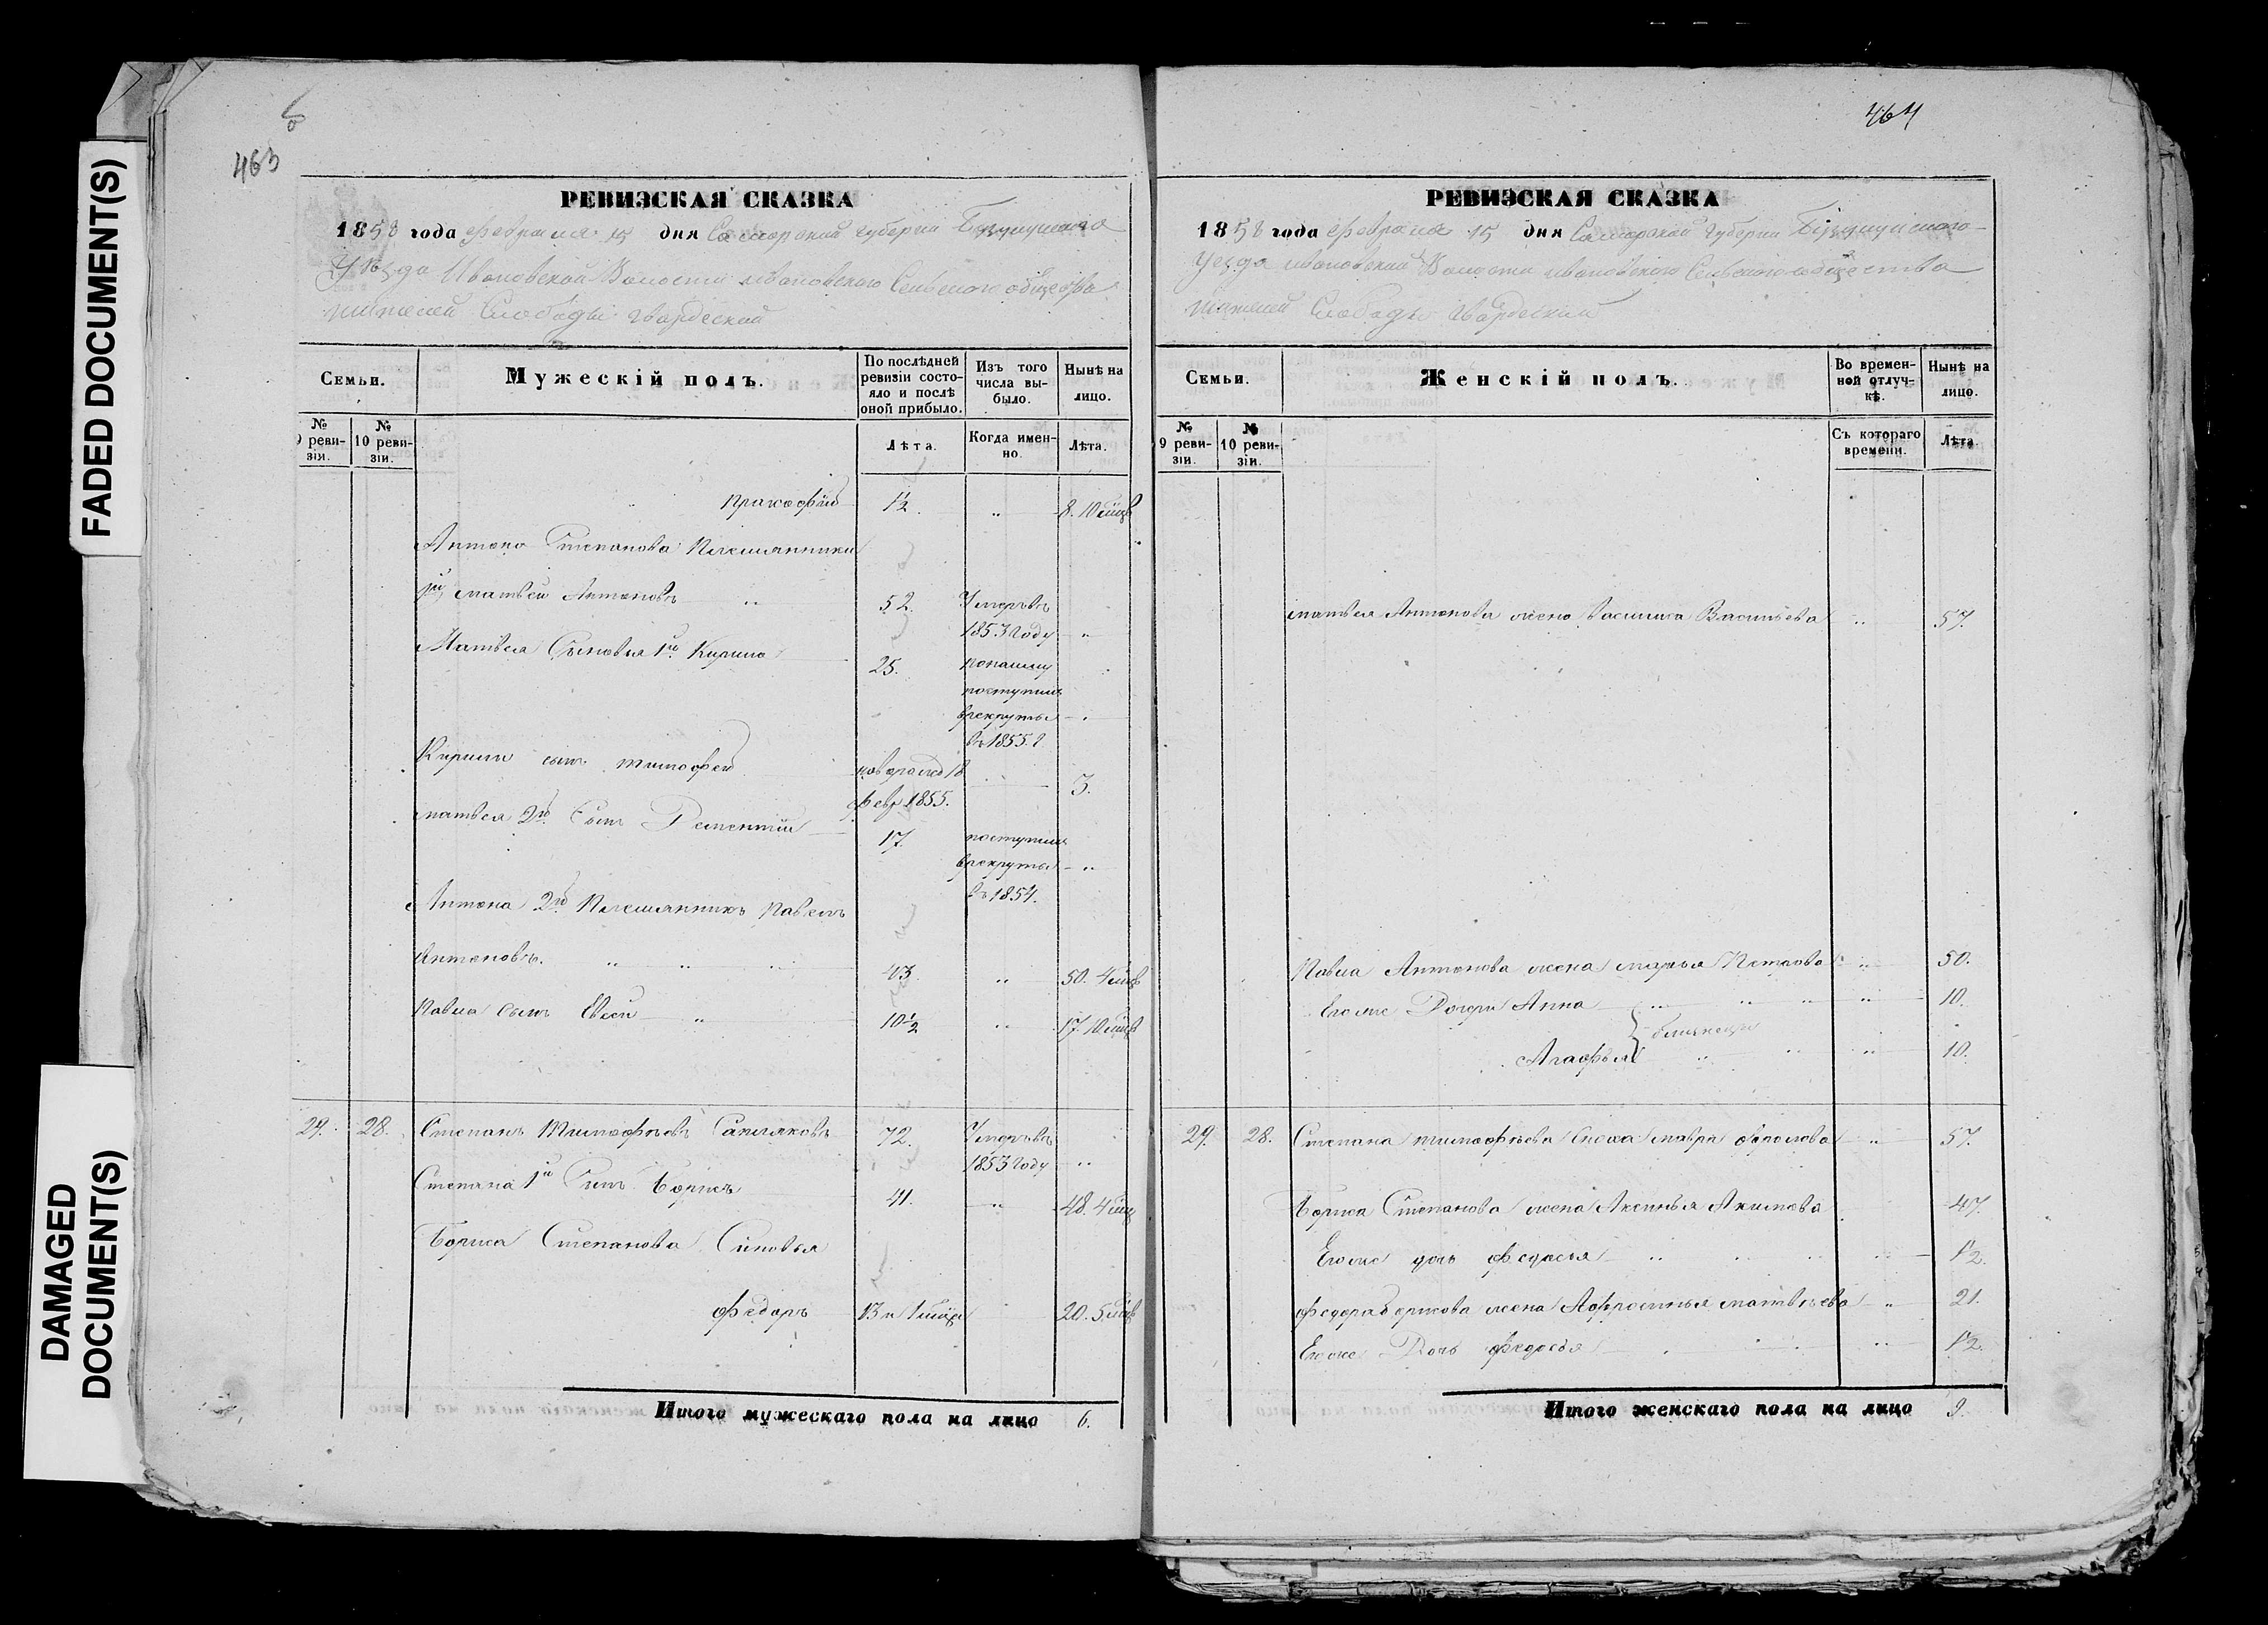 FADED DOCUMENT(S)
DAMAGED
DOCUMENT(S)
463
РЕВИЗСКАЯ СКАЗКА
1858 года февраля 15 дня Самарской губерніи Бузулукскаго
Уѣзда Ивановской Волости ивановского Сельского общества
жителей Слободы Гвардеской
Семьи.
Мужескій полъ.
По послѣдней
ревизіи состо-
яло и послѣ
оной прибыло.
Изъ того
числа вы-
было.
Нынѣ на
лицо.
№
9 реви-
зіи.
№
10 реви-
зіи.
Лѣта.
Когда имен-
но.
Лѣта.
Пракофій 1/2 " 8. 10 мцв
Антона Степанова Племянники
1й Матвей Антоновъ " 52. Умеръ въ
1853 году "
Матвея Сыновья 1й Кирило 25.
поступилъ
в рекруты
въ 1855. г
Кирилы сынъ тимофей 18 3.
февр 1855.
матвея 2й Сынъ Дементій 17. поступилъ
в рекруты "
въ 1854.
Антона 2й Племянникъ Павелъ
Антоновъ. " " 43. " 50. 4 мцв
Павла сынъ Евсей " 10 1/2 " 17. 10 мцв
29. 28. Степанъ Тимофѣевъ 72. Умеръ въ
1853 году "
Степана 1й Сынъ Борисъ 41. " 48. 4 мц
Бориса Степанова Сыновья
Федоръ 13 и 1 мцъ 20. 5 мцв
Итого мужескаго пола на лицо 6.
464
РЕВИЗСКАЯ СКАЗКА
1858 года февраля 15 дня Самарской Губерніи Бузулукскаго
уезда ивановской Волости ивановского Сельского общества
жителей Слободы Гвардеской
Семьи.
Женскій полъ.
Во времен-
ной отлуч-
кѣ.
Нынѣ на
лицо.
№
9 реви-
зіи.
№
10 реви-
зіи.
Съ котораго
времени.
Лѣта.
матвея Антонова жена василиса Васильева " 57.
Павла Антонова жена марья Петрова " 50.
Его же Дочери Анна " " " " 10.
близнецы
Агафья " " " 10.
29. 28. Степана тимофѣева Сноха мавра фролова " 57.
Бориса Степанова жена Аксинья Акимова 47.
Его же дочь федосья " " 1/2.
федора борисова жена Афросинья матвѣева " 21.
Его же Дочь федосья " 1/2.
Итого женскаго пола на лицо 9.